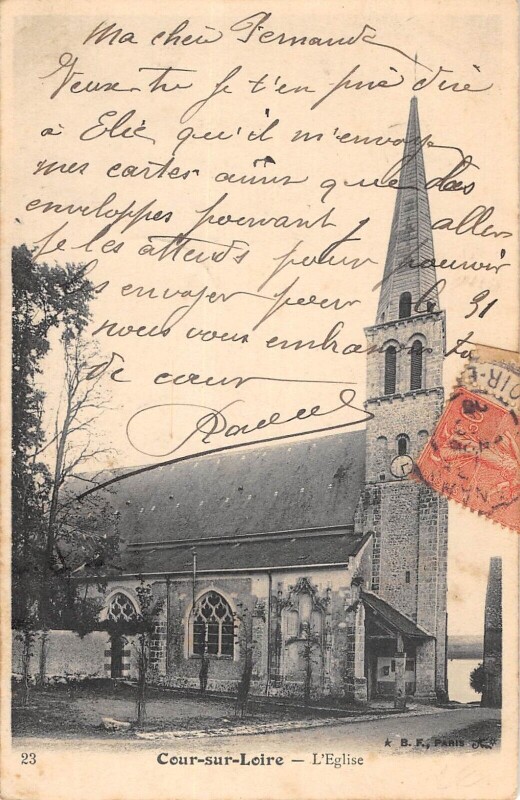 Ma chère Fernande
Veux-tu je t'en prie dire
à Elie qu'il m'envoye
mes cartes ainsi que des
enveloppes pouvant y aller
je les attends pour pouvoir
les envoyer pour le 31
nous vous embrassons
de cœur
23
Cour-sur-Loire — L'Eglise
★ B. F., PARIS